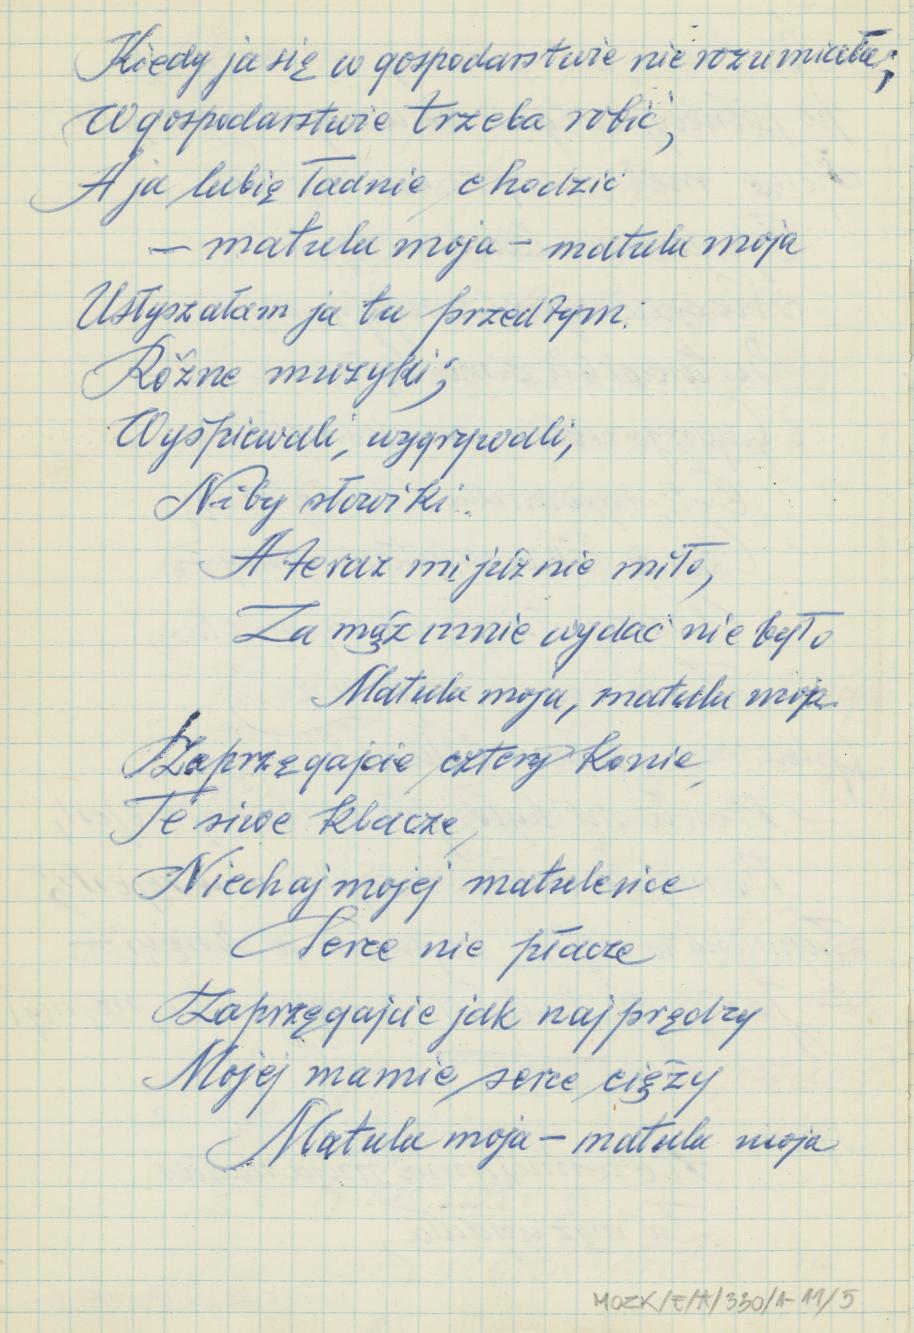 Kiedy ja się w gospodarstwie nie rozumiała;
W gospodarstwie trzeba robić,
A ja lubię ładnie chodzić
– matula moja – matula moja
Usłyszałam ja tu przedtym.
Różne muzyki;
Wyśpiewali, wygrywali,
Niby słowiki.
A teraz mi już nie miło,
Za mąż mnie wydać nie było
Matula moja, matula moja.
Zaprzęgajcie cztery konie,
Te siwe klacze,
Niechaj mojej matulence
Serce nie płacze
Zaprzęgajcie jak najprędzy
Mojej mamie serce cięży
Matula moja – matula moja
MOZK/E/A/330/1-11/5